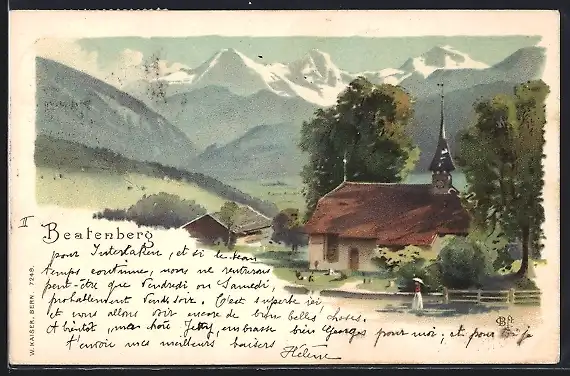 II
Beatenberg
pour Interlaken, et si le beau
temps continue, nous ne rentrerons
peut-être que Vendredi ou Samedi,
probablement Vendredi soir. C'est superbe ici,
et nous allons voir encore de bien belles choses.
A bientôt, ma chère Jetty, embrasse bien Georges pour moi; et pour toi je
t'envoie mes meilleurs baisers
Hélène
W. KAISER, BERN. 7248.